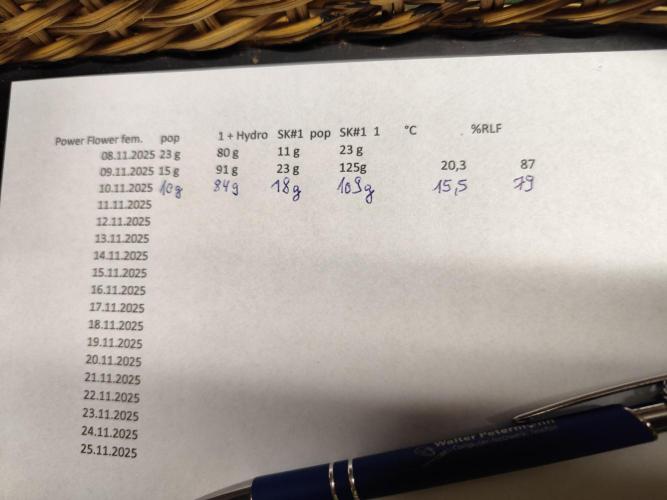 Power Flower fem. pop 1 + Hydro SK#1 pop SK#1 1 °C %RLF
08.11.2025 23 g 80 g 11 g 23 g
09.11.2025 15 g 91 g 23 g 125g 20,3 87
10.11.2025 10g 84g 18g 109g 15,5 79
11.11.2025
12.11.2025
13.11.2025
14.11.2025
15.11.2025
16.11.2025
17.11.2025
18.11.2025
19.11.2025
20.11.2025
21.11.2025
22.11.2025
23.11.2025
24.11.2025
25.11.2025
Walter